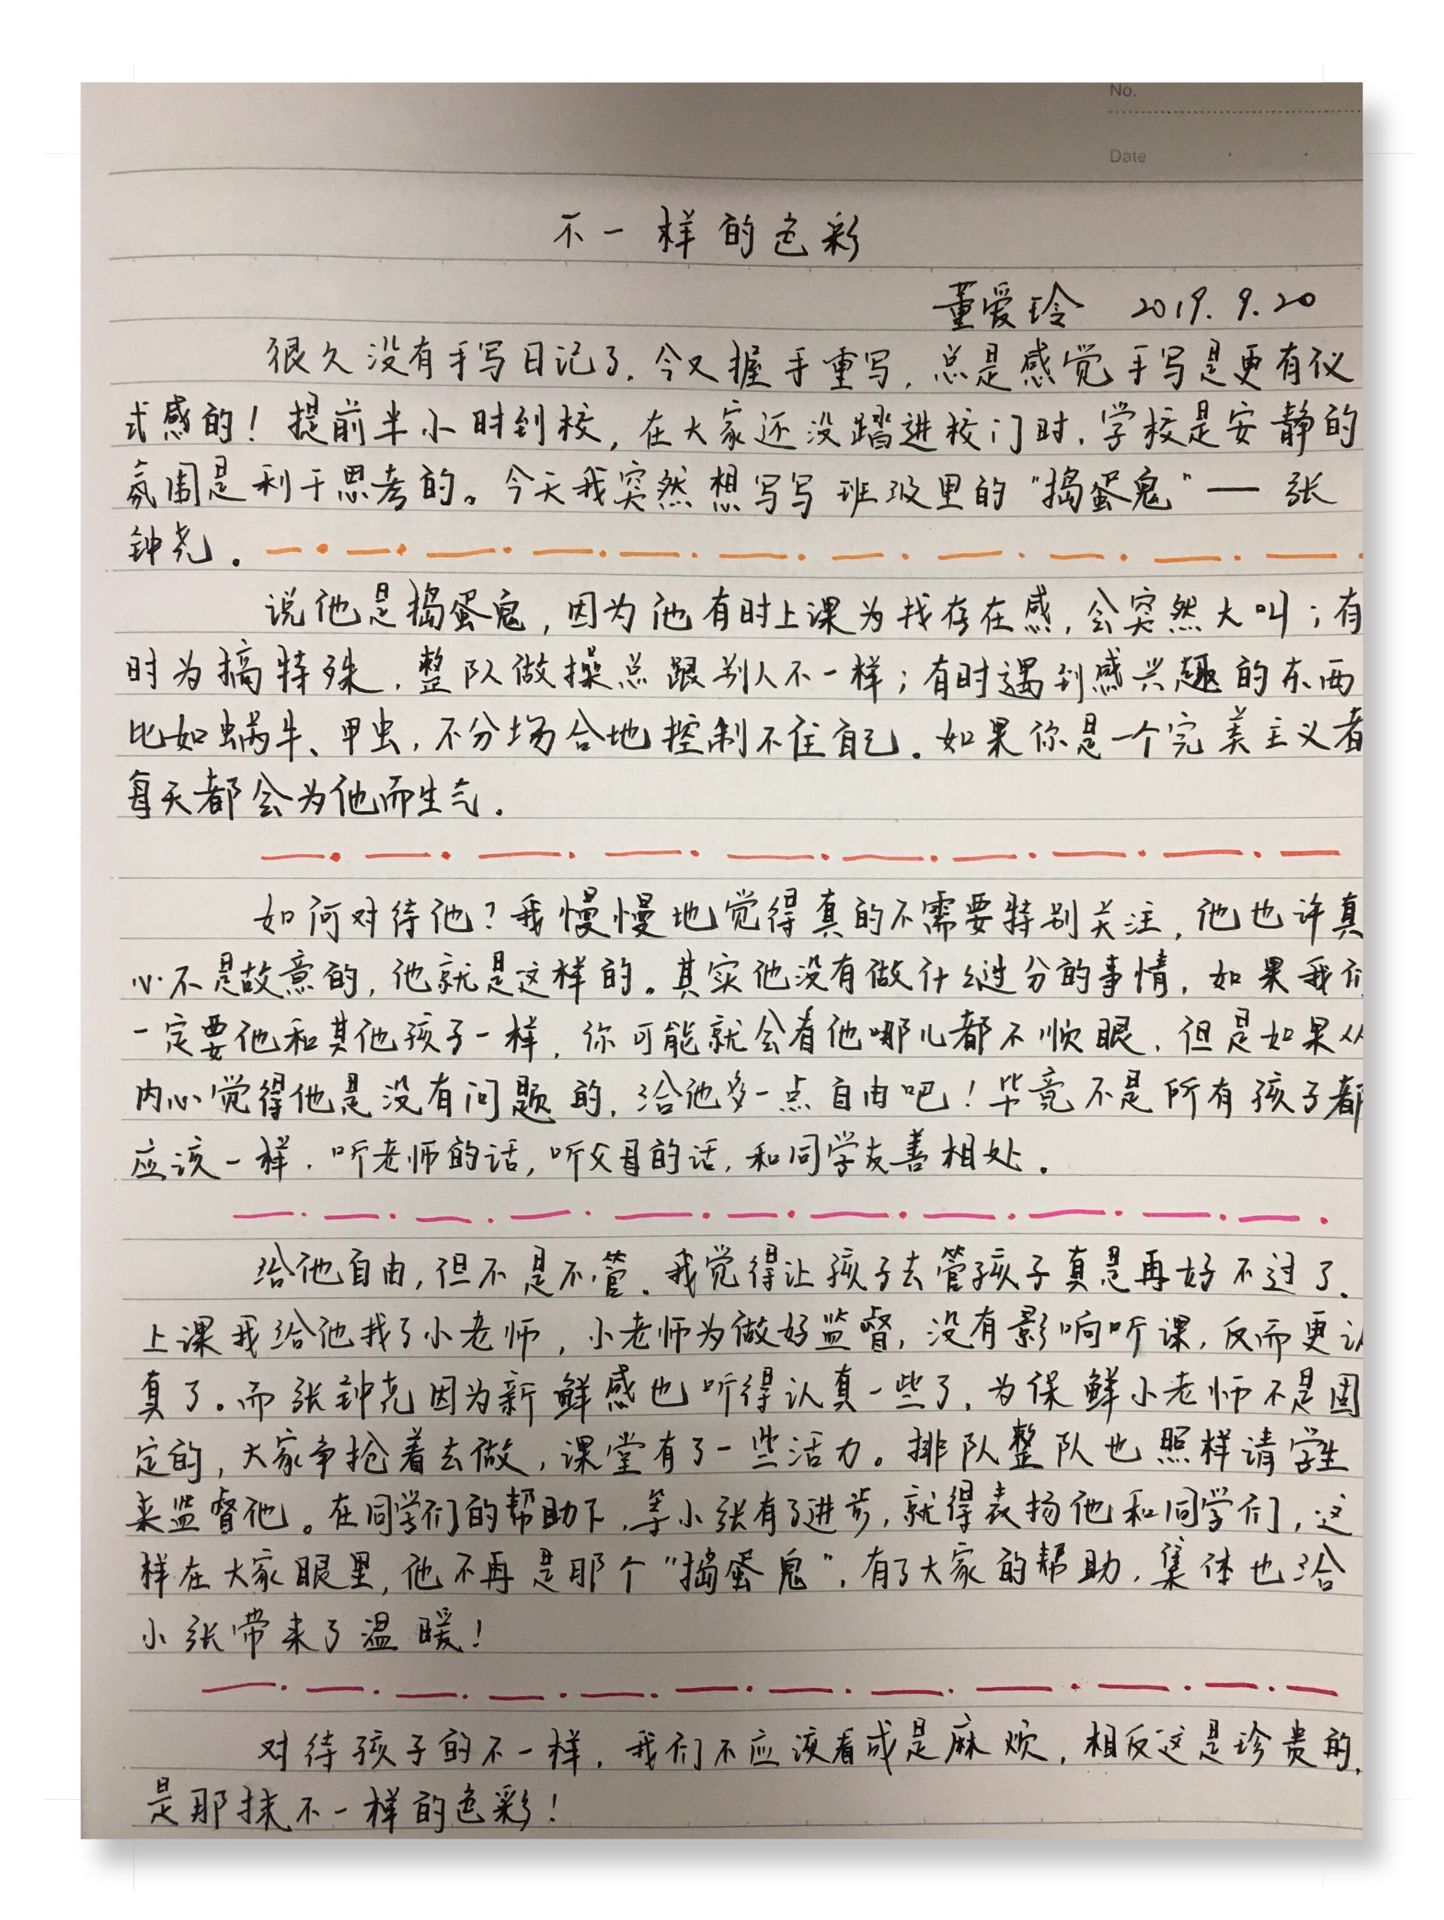 No.
Date
不一样的色彩
董爱玲 2019.9.20
很久没有手写日记了.今又握手重写,总是感觉手写是更有仪
式感的!提前半小时到校,在大家还没踏进校门时.学校是安静的
氛围是利于思考的。今天我突然想写写班级里的"捣蛋鬼"—张
钟尧.
说他是捣蛋鬼,因为他有时上课为找存在感,会突然大叫;有
时为搞特殊,整队做操总跟别人不一样;有时遇到感兴趣的东西
比如蜗牛、甲虫,不分场合地控制不住自己.如果你是一个完美主义者
每天都会为他而生气.
如何对待他?我慢慢地觉得真的不需要特别关注,他也许真
心不是故意的,他就是这样的。其实他没有做什么过分的事情,如果我们
一定要他和其他孩子一样,你可能就会看他哪儿都不顺眼,但是如果从
内心觉得他是没有问题的,给他多一点自由吧!毕竟不是所有孩子都
应该一样.听老师的话,听父母的话,和同学友善相处.
给他自由,但不是不管.我觉得让孩子去管孩子真是再好不过了.
上课我给他找了小老师,小老师为做好监督,没有影响听课,反而更认
真了。而张钟尧因为新鲜感也听得认真一些了,为保鲜小老师不是固
定的,大家争抢着去做,课堂有了一些活力。排队整队也照样请学生
来监督他。在同学们的帮助下,等小张有了进步,就得表扬他和同学们,这
样在大家眼里,他不再是那个"捣蛋鬼",有了大家的帮助,集体也给
小张带来了温暖!
对待孩子的不一样,我们不应该看成是麻烦,相反这是珍贵的,
是那抹不一样的色彩!